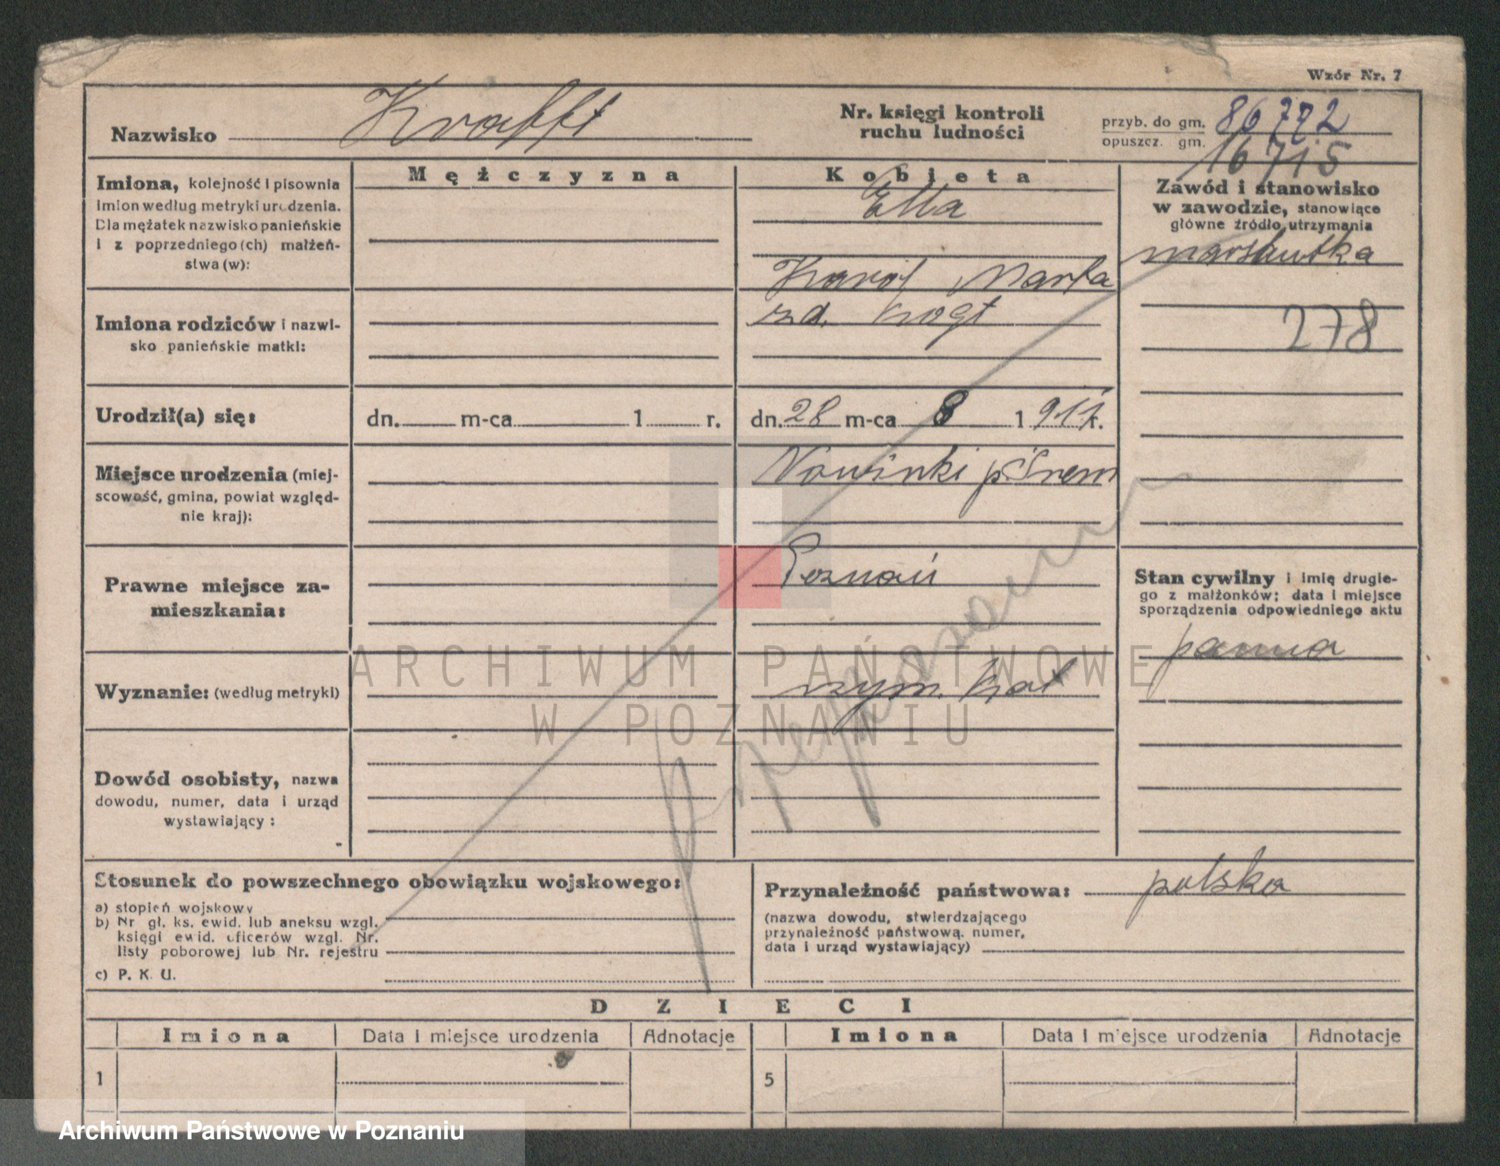 Wzór Nr. 7
Nazwisko Krafft
Nr. księgi kontroli
ruchu ludności
przyb. do gm. 86772
opuszcz. gm. 16715
Imiona, kolejność i pisownia
imion według metryki urodzenia.
Dla mężatek nazwisko panieńskie
i z poprzedniego(ch) małżeń-
stwa(w):
Mężczyzna
Kobieta
Ella
Zawód i stanowisko
w zawodzie, stanowiące
główne źródło utrzymania
278
Imiona rodziców i nazwi-
sko panieńskie matki:
Karol Marta
zd. Vogt
Urodził(a) się:
dn. m-ca 1 r.
dn. 28 m-ca 8 1911 r.
Miejsce urodzenia (miej-
scowość, gmina, powiat względ-
nie kraj):
Nowinki p. Śrem
Prawne miejsce za-
mieszkania:
Poznań
Stan cywilny i imię drugie-
go z małżonków; data i miejsce
sporządzenia odpowiedniego aktu
panna
Wyznanie: (według metryki)
rzym. kat
Dowód osobisty, nazwa
dowodu, numer, data i urząd
wystawiający:
przepisano
Stosunek do powszechnego obowiązku wojskowego:
a) stopień wojskowy
b) Nr gł. ks. ewid. lub aneksu wzgl.
księgi ewid. oficerów wzgl. Nr.
listy poborowej lub Nr. rejestru
c) P. K. U.
Przynależność państwowa: polska
(nazwa dowodu, stwierdzającego
przynależność państwową, numer,
data i urząd wystawiający)
DZIECI
Imiona Data i miejsce urodzenia Adnotacje Imiona Data i miejsce urodzenia Adnotacje
1 5
ARCHIWUM PAŃSTWOWE
W POZNANIU
Archiwum Państwowe w Poznaniu